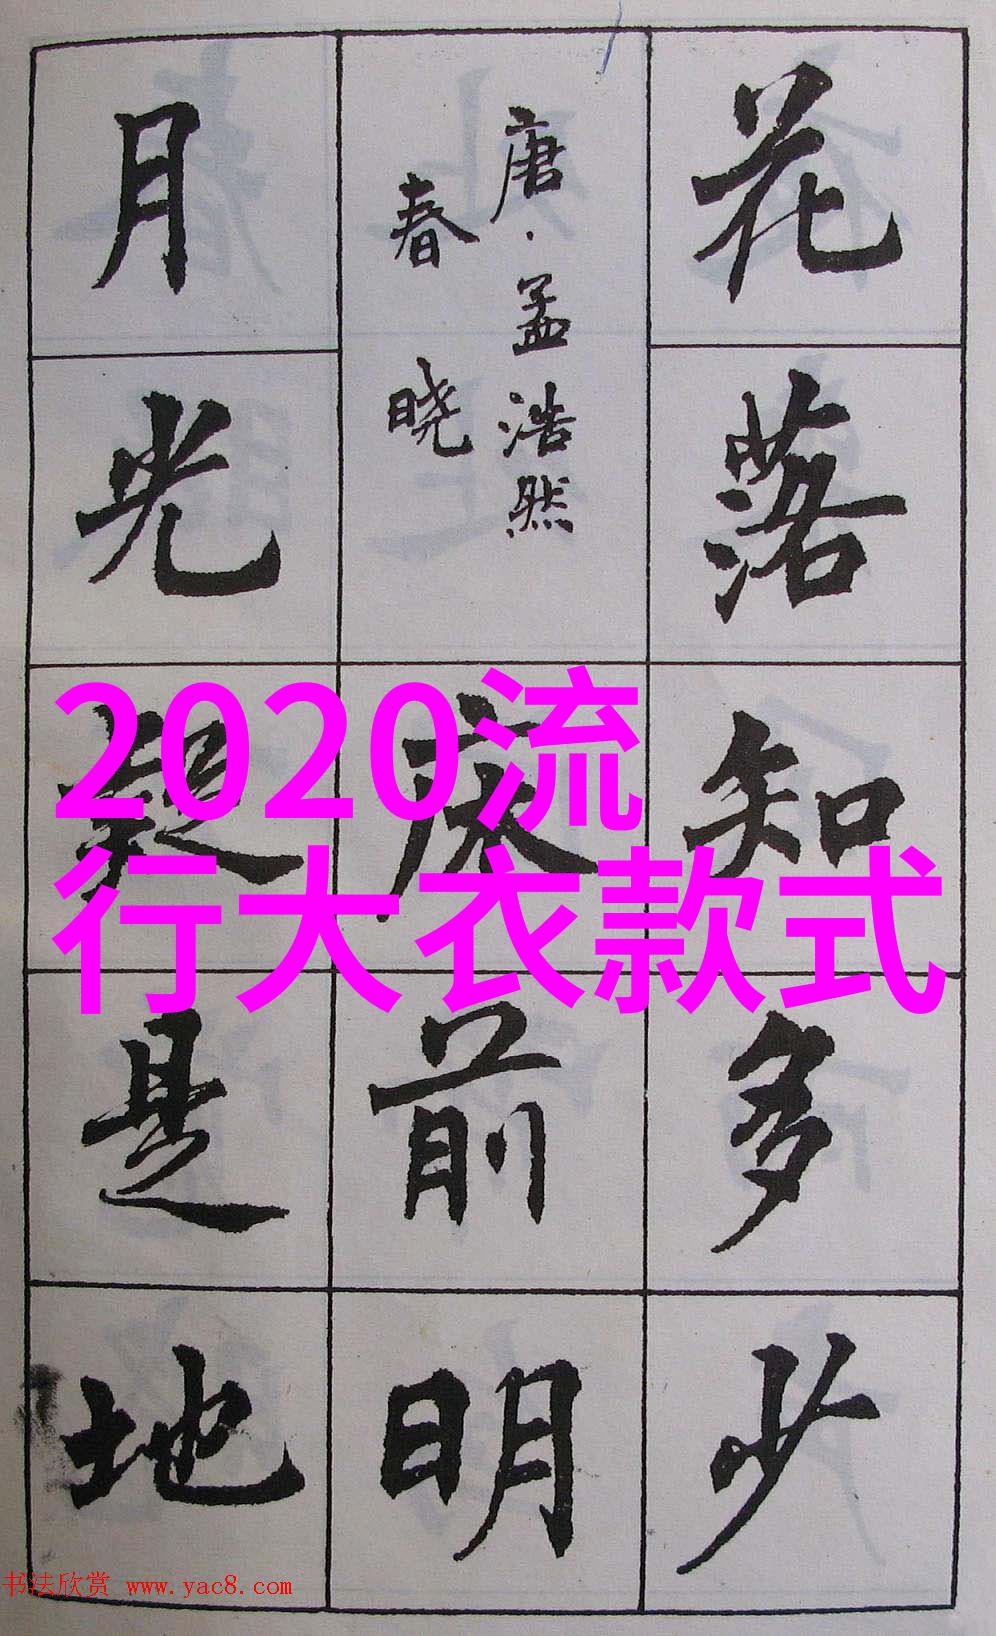 花落知多少
唐·孟浩然
春晓
床前明
月光疑是地
2020流
行大衣款式
书法欣赏 www.yac8.com